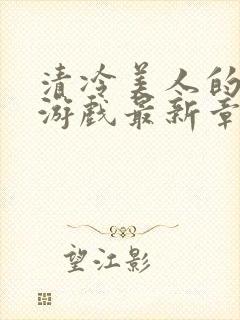 清冷美人的
游戏最新章
望江影